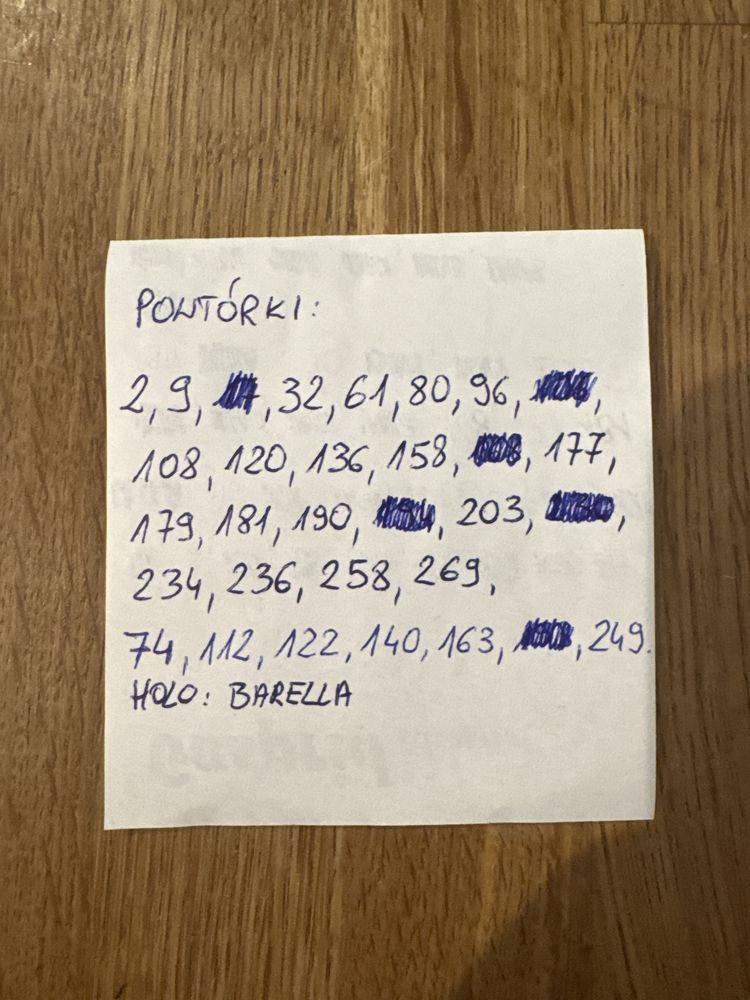 POWTÓRKI:
2, 9, , 32, 61, 80, 96, ,
108, 120, 136, 158, , 177,
179, 181, 190, , 203, ,
234, 236, 258, 269,
74, 112, 122, 140, 163, , 249.
HOLO: BARELLA